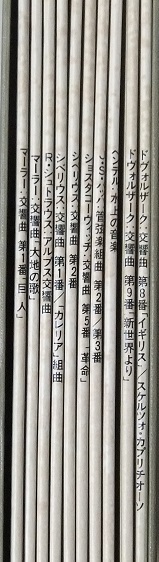 ドヴォルザーク：交響曲 第8番「イギリス」／スケルツォ・カプリチオーソ
ドヴォルザーク：交響曲 第9番「新世界より」
ヘンデル：水上の音楽
J.S.バッハ：管弦楽組曲 第2番 第3番
ショスタコーヴィッチ：交響曲 第5番「革命」
シベリウス：交響曲 第2番
シベリウス：交響曲 第1番／「カレリア」組曲
R.シュトラウス：アルプス交響曲
マーラー：交響曲「大地の歌」
マーラー：交響曲 第1番「巨人」